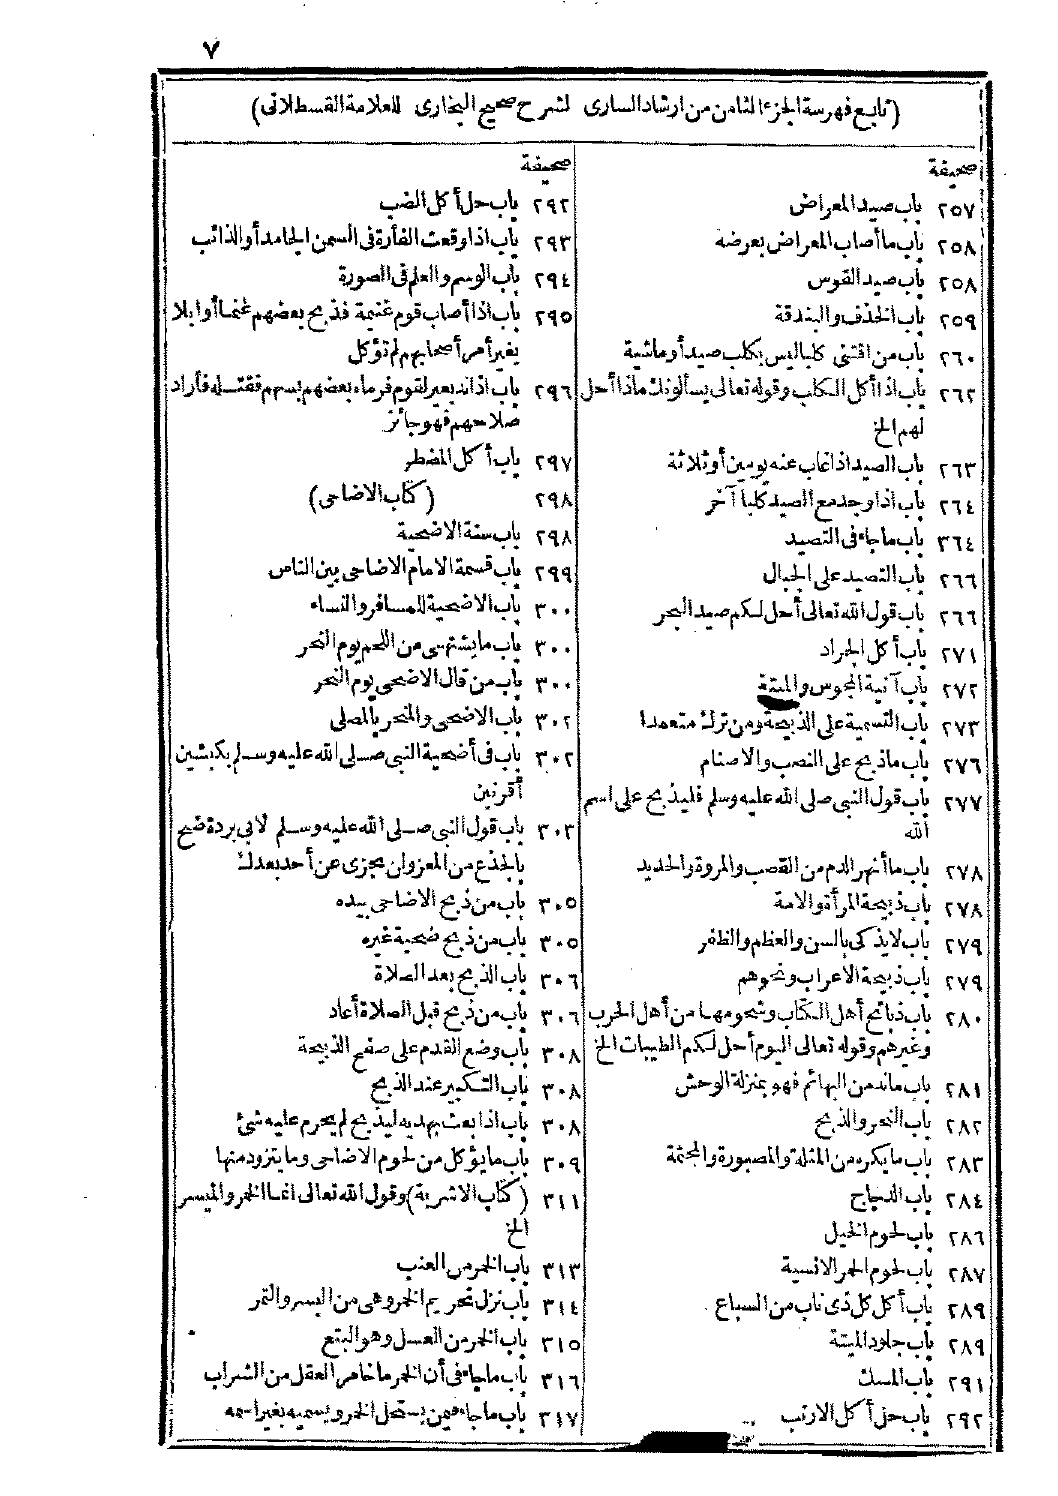 ٧
(تابع فهرسة الجزء الثامن من ارشاد السارى لشرح صحيح البخارى للعلامة القسطلانى)
صحيفة
٢٥٧ باب صيد المعراض
٢٥٨ باب ما أصاب المعراض بعرضه
٢٥٨ باب صيد القوس
٢٥٩ باب الخذف والبندقة
٢٦٠ باب من اقتنى كلبا ليس بكلب صيد أو ماشية
٢٦٢ باب اذا أكل الكلب وقوله تعالى يسألونك ماذا أحل
لهم الخ
٢٦٣ باب الصيد اذا غاب عنه يومين أو ثلاثة
٢٦٤ باب اذا وجد مع الصيد كلبا آخر
٣٦٤ باب ما جاء فى التصيد
٢٦٦ باب التصيد على الجبال
٢٦٦ باب قول الله تعالى أحل لكم صيد البحر
٢٧١ باب أكل الجراد
٢٧٢ باب آنية المجوس والميتة
٢٧٣ باب التسمية على الذبيحة ومن ترك متعمدا
٢٧٦ باب ما ذبح على النصب والاصنام
٢٧٧ باب قول النبى صلى الله عليه وسلم فليذبح على اسم
الله
٢٧٨ باب ما أنهر الدم من القصب والمروة والحديد
٢٧٨ باب ذبيحة المرأة والامة
٢٧٩ باب لا يذكى بالسن والعظم والظفر
٢٧٩ باب ذبيحة الاعراب ونحوهم
٢٨٠ باب ذبائح أهل الكتاب وشحومها من أهل الحرب
وغيرهم وقوله تعالى اليوم أحل لكم الطيبات الخ
٢٨١ باب ما ند من البهائم فهو بمنزلة الوحش
٢٨٢ باب النحر والذبح
٢٨٣ باب ما يكره من المثلة والمصبورة والمجثمة
٢٨٤ باب الدجاج
٢٨٦ باب لحوم الخيل
٢٨٧ باب لحوم الحمر الانسية
٢٨٩ باب أكل كل ذى ناب من السباع
٢٨٩ باب جلود الميتة
٢٩١ باب المسك
٢٩٢ باب حل أكل الارنب
صحيفة
٢٩٢ باب حل أكل الضب
٢٩٣ باب اذا وقعت الفأرة فى السمن الجامد أو الذائب
٢٩٤ باب الوسم والعلم فى الصورة
٢٩٥ باب اذا أصاب قوم غنيمة فذبح بعضهم غنما أو ابلا
بغير أمر أصحابهم لم تؤكل
٢٩٦ باب اذا ند بعير لقوم فرماه بعضهم بسهم فقتله فأراد
صلاحهم فهو جائز
٢٩٧ باب أكل المضطر
٢٩٨ (كتاب الاضاحى)
٢٩٨ باب سنة الاضحية
٢٩٩ باب قسمة الامام الاضاحى بين الناس
٣٠٠ باب الاضحية للمسافر والنساء
٣٠٠ باب ما يشتهى من اللحم يوم النحر
٣٠٠ باب من قال الاضحى يوم النحر
٣٠٢ باب الاضحى والمنحر بالمصلى
٣٠٢ باب فى أضحية النبى صلى الله عليه وسلم بكبشين
أقرنين
٣٠٣ باب قول النبى صلى الله عليه وسلم لابى بردة ضح
بالجذع من المعز وان يجزى عن أحد بعدك
٣٠٥ باب من ذبح الاضاحى بيده
٣٠٥ باب من ذبح ضحية غيره
٣٠٦ باب الذبح بعد الصلاة
٣٠٦ باب من ذبح قبل الصلاة أعاد
٣٠٨ باب وضع القدم على صفح الذبيحة
٣٠٨ باب التكبير عند الذبح
٣٠٨ باب اذا بعث بهديه ليذبح لم يحرم عليه شئ
٣٠٩ باب ما يؤكل من لحوم الاضاحى وما يتزود منها
٣١١ (كتاب الاشربة) وقول الله تعالى انما الخمر والميسر
الخ
٣١٣ باب الخمر من العنب
٣١٤ باب نزل تحريم الخمر وهى من البسر والتمر
٣١٥ باب الخمر من العسل وهو البتع
٣١٦ باب ما جاء فى أن الخمر ما خامر العقل من الشراب
٣١٧ باب ما جاء فيمن يستحل الخمر ويسميه بغير اسمه